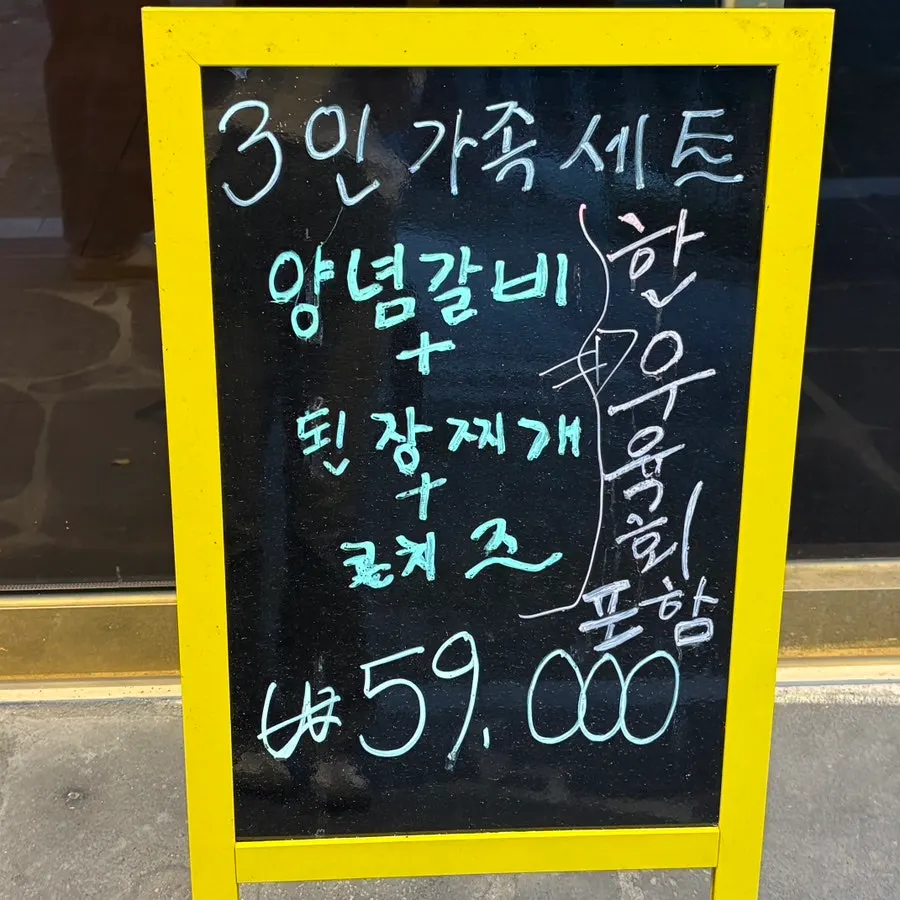 3인 가족 세트
양념갈비
+
된장찌개
+
콘치즈
한
우
육
회
포함
₩59.000